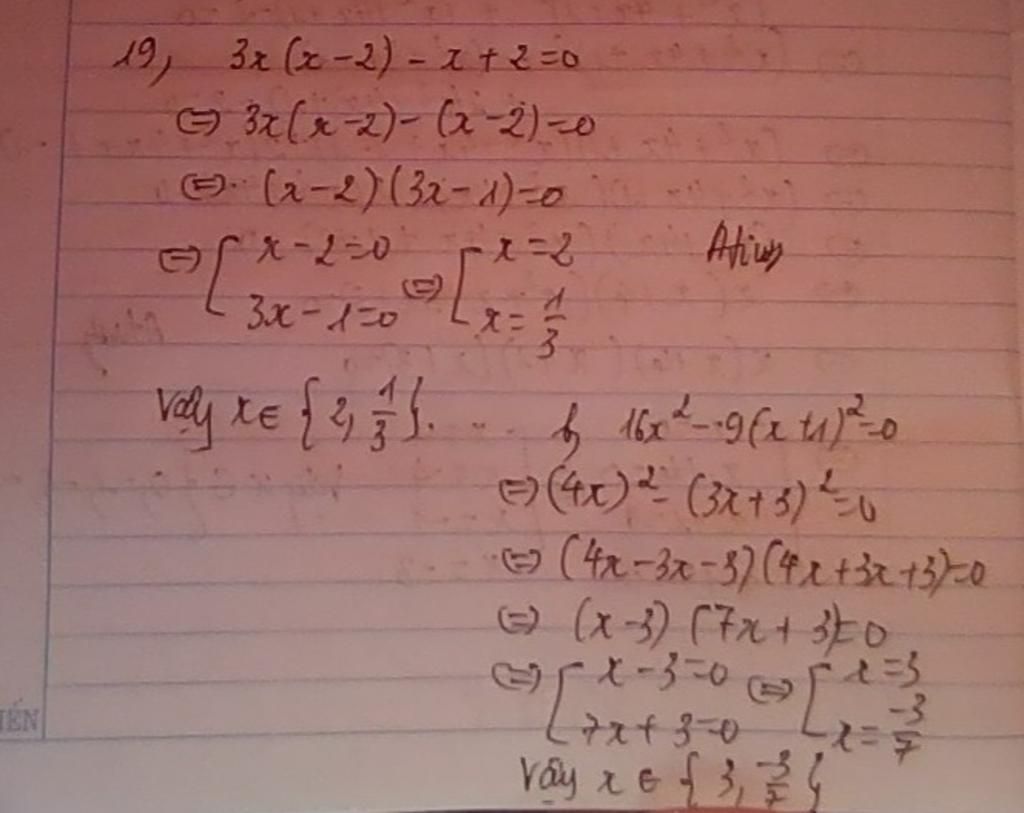 19, 3x(x-2) - x + 2 = 0
⇔ 3x(x-2) - (x-2) = 0
⇔ (x-2)(3x-1) = 0
⇔ [ x-2=0 ⇔ [ x=2
3x-1=0 x = 1/3
Vậy x ∈ { 2, 1/3 }.
b, 16x² - 9(x+1)² = 0
⇔ (4x)² - (3x+3)² = 0
⇔ (4x-3x-3)(4x+3x+3) = 0
⇔ (x-3)(7x+3) = 0
⇔ [ x-3=0 ⇔ [ x=3
7x+3=0 x = -3/7
Vậy x ∈ { 3, -3/7 }
IẾN